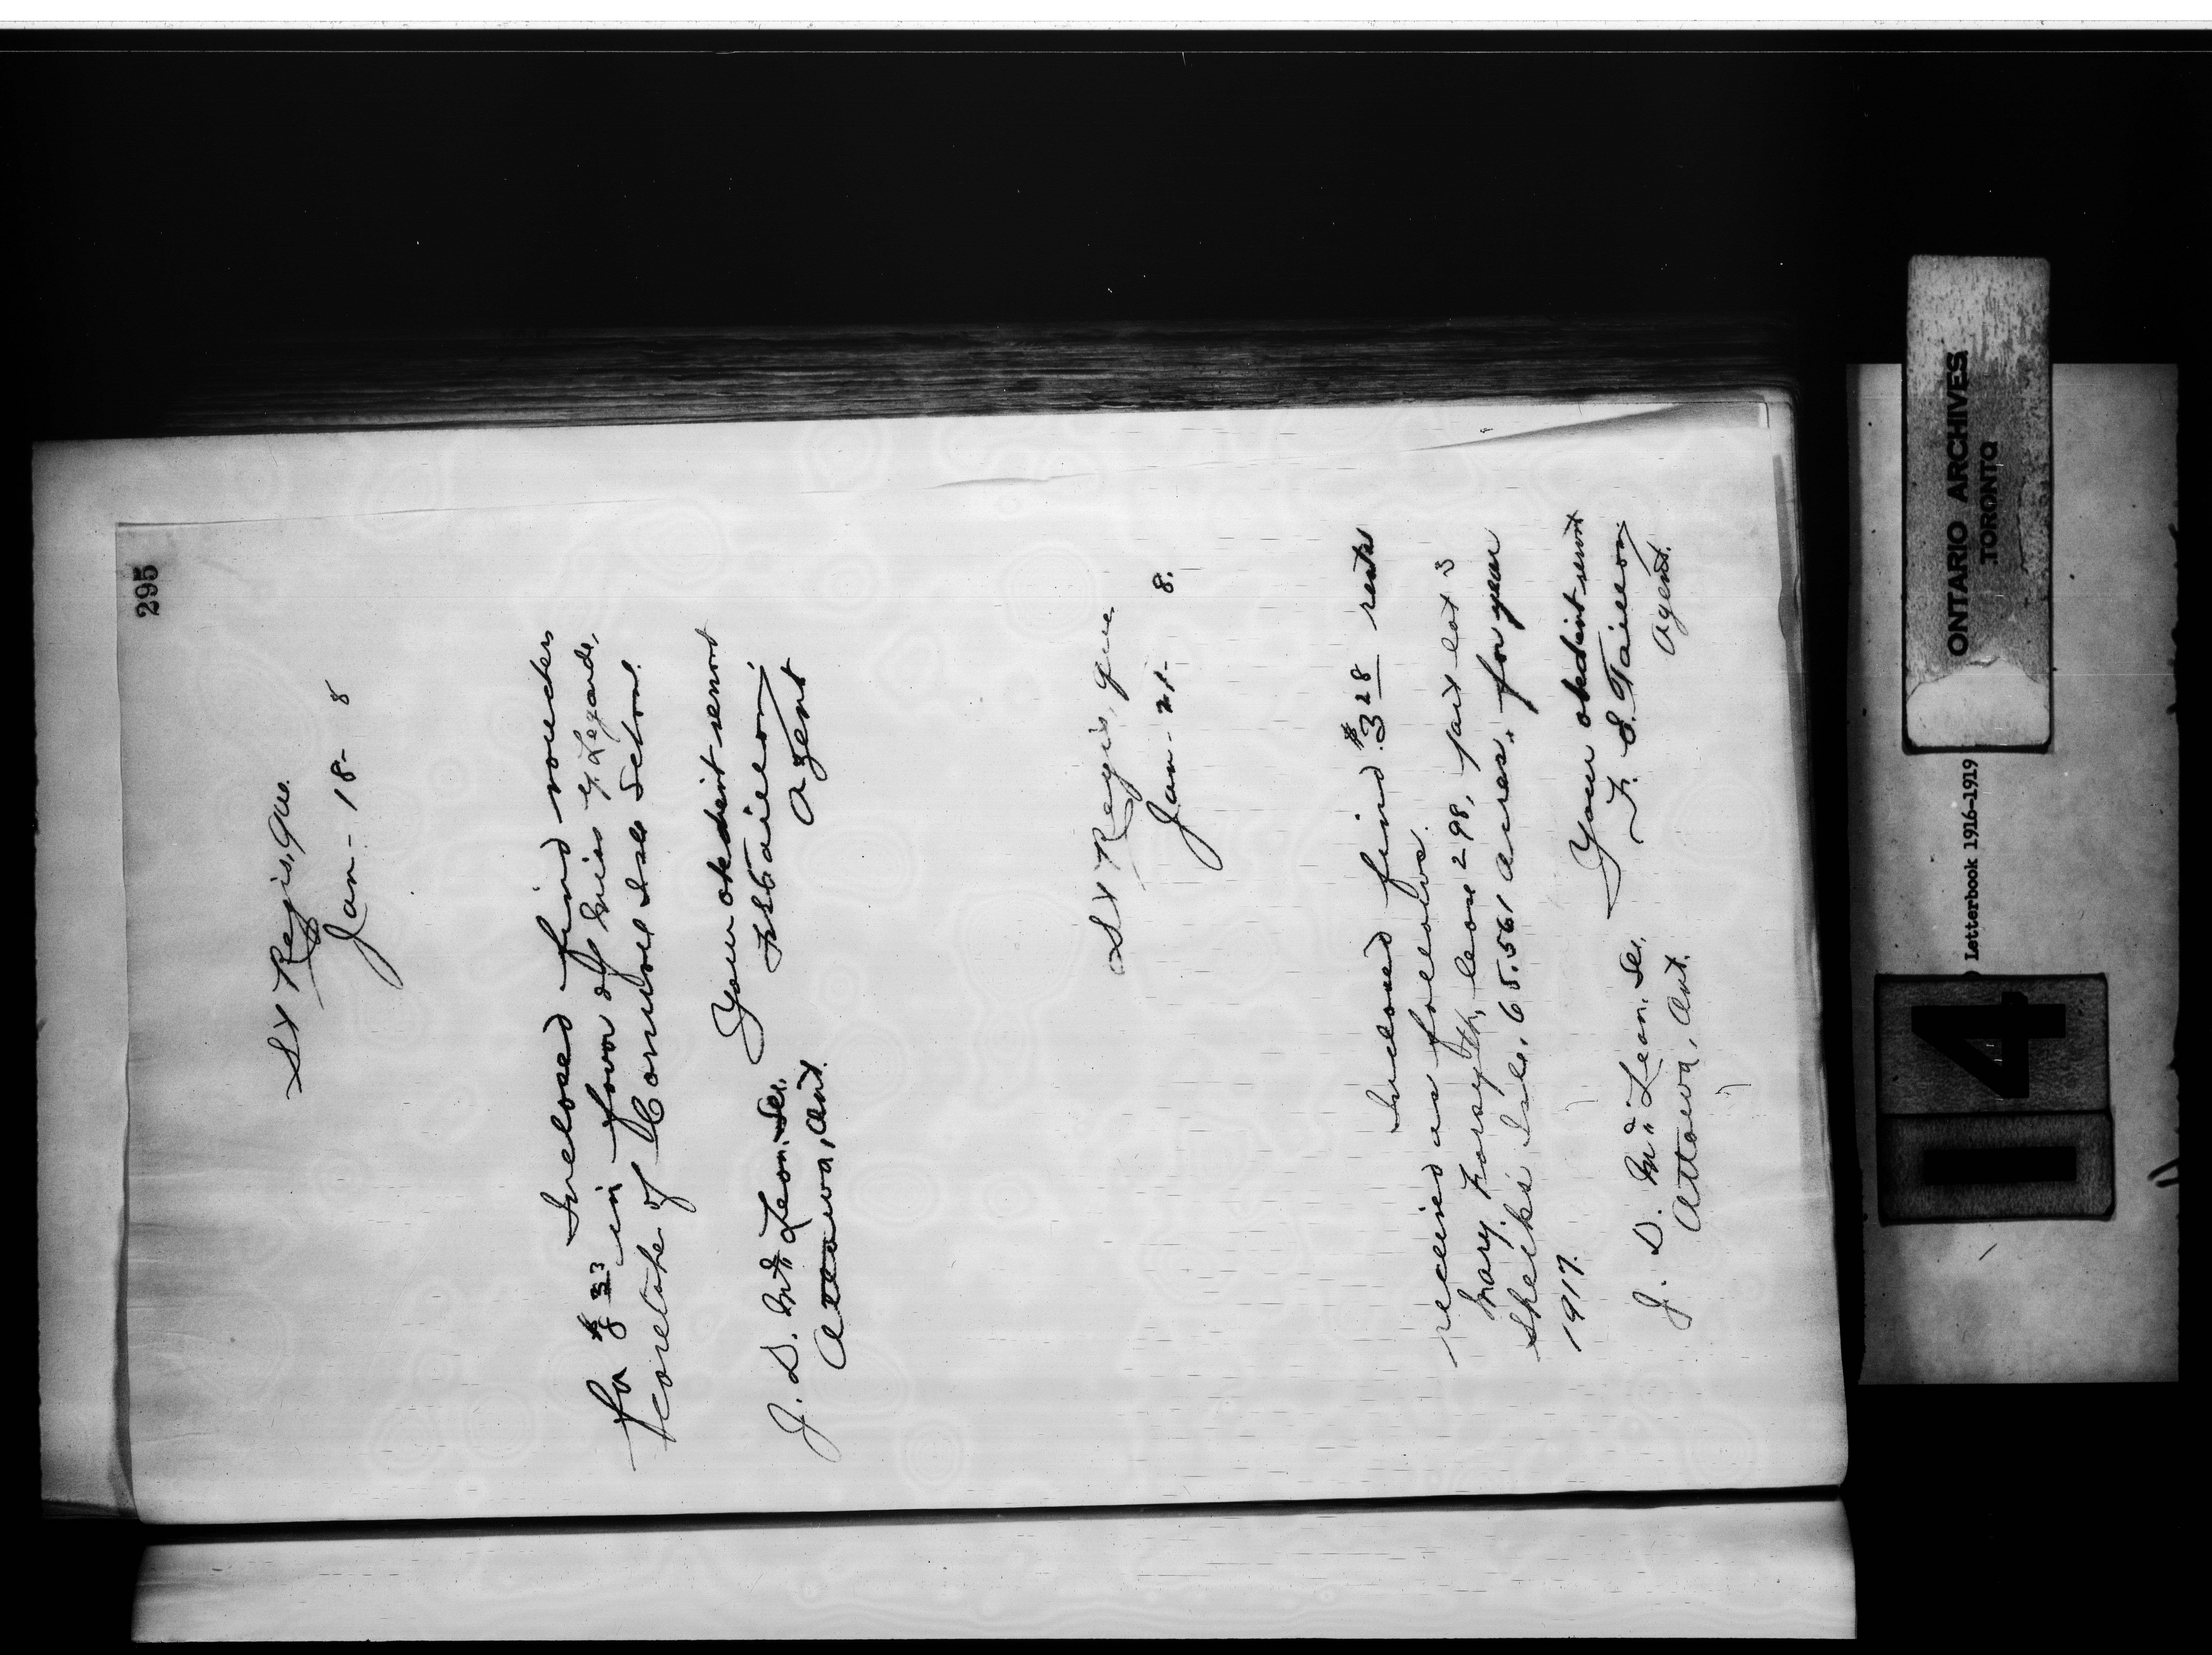 295
St Regis, Que.
Jan - 18 - 8
Inclosed find voucher
for $8 33 in favor of Miss G. Legarde,
caretaker of Cornwall Isle School.
Your obedient servant
F. S. Taillon,
Agent
J. D. McLean. Sec.
Ottawa, Ont.
St Regis, Que
Jan - 21 - 8.
Inclosed find $3 28 rent
received as follows.
Mary Forsyth, lease 298, part lot 3
Sheiks Isle, 65.561 acres. for year
1917.
Your obedient servant
F. S. Taillon
Agent.
J. D. McLean. Sec.
Ottawa, Ont.
ONTARIO ARCHIVES
TORONTO
Letterbook 1916-1919
14